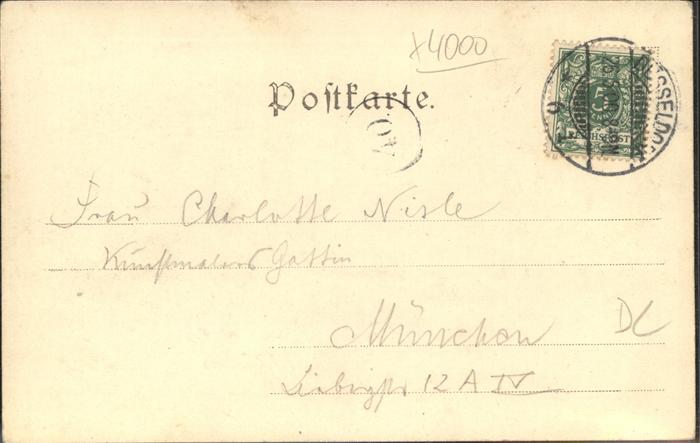 x4000
Postkarte.
DÜSSELDORF
5
REICHSPOST
Frau Charlotte Nisle
Kunstmalers Gattin
München
DC
Liebigstr 12 A IV